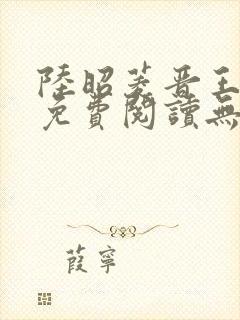 陸昭菱晋王
免費閱讀無
葭寧